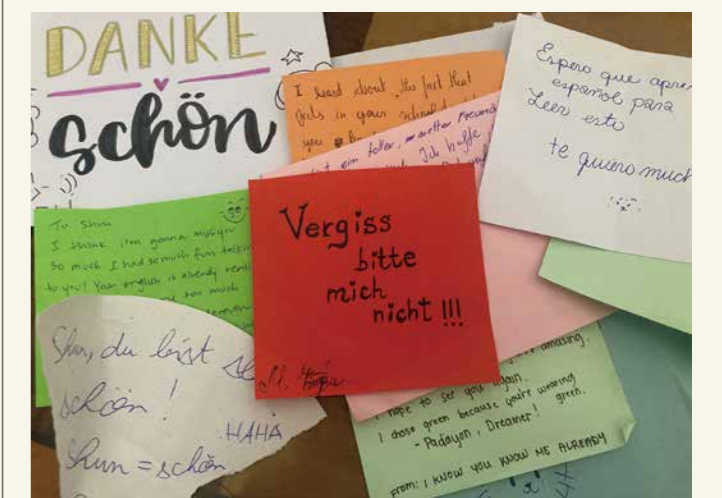 DANKE
schön
I heard about the fact that
in your school
you
ein toller, netter Freund
Ich hoffe
Espero que apren
español para
Leer esto
te quiero much
To Shun
I think I'm gonna miss you
so much I had so much fun talkin
to you! Your english is already
too much
Vergiss
bitte
mich
nicht !!!
Shun, du bist se
schön !
HAHA
Shun = schön
amazing.
I hope to see you again.
I chose green because you're wearing
green.
- Padayon, Dreamer!
From: I KNOW YOU KNOW ME ALREADY